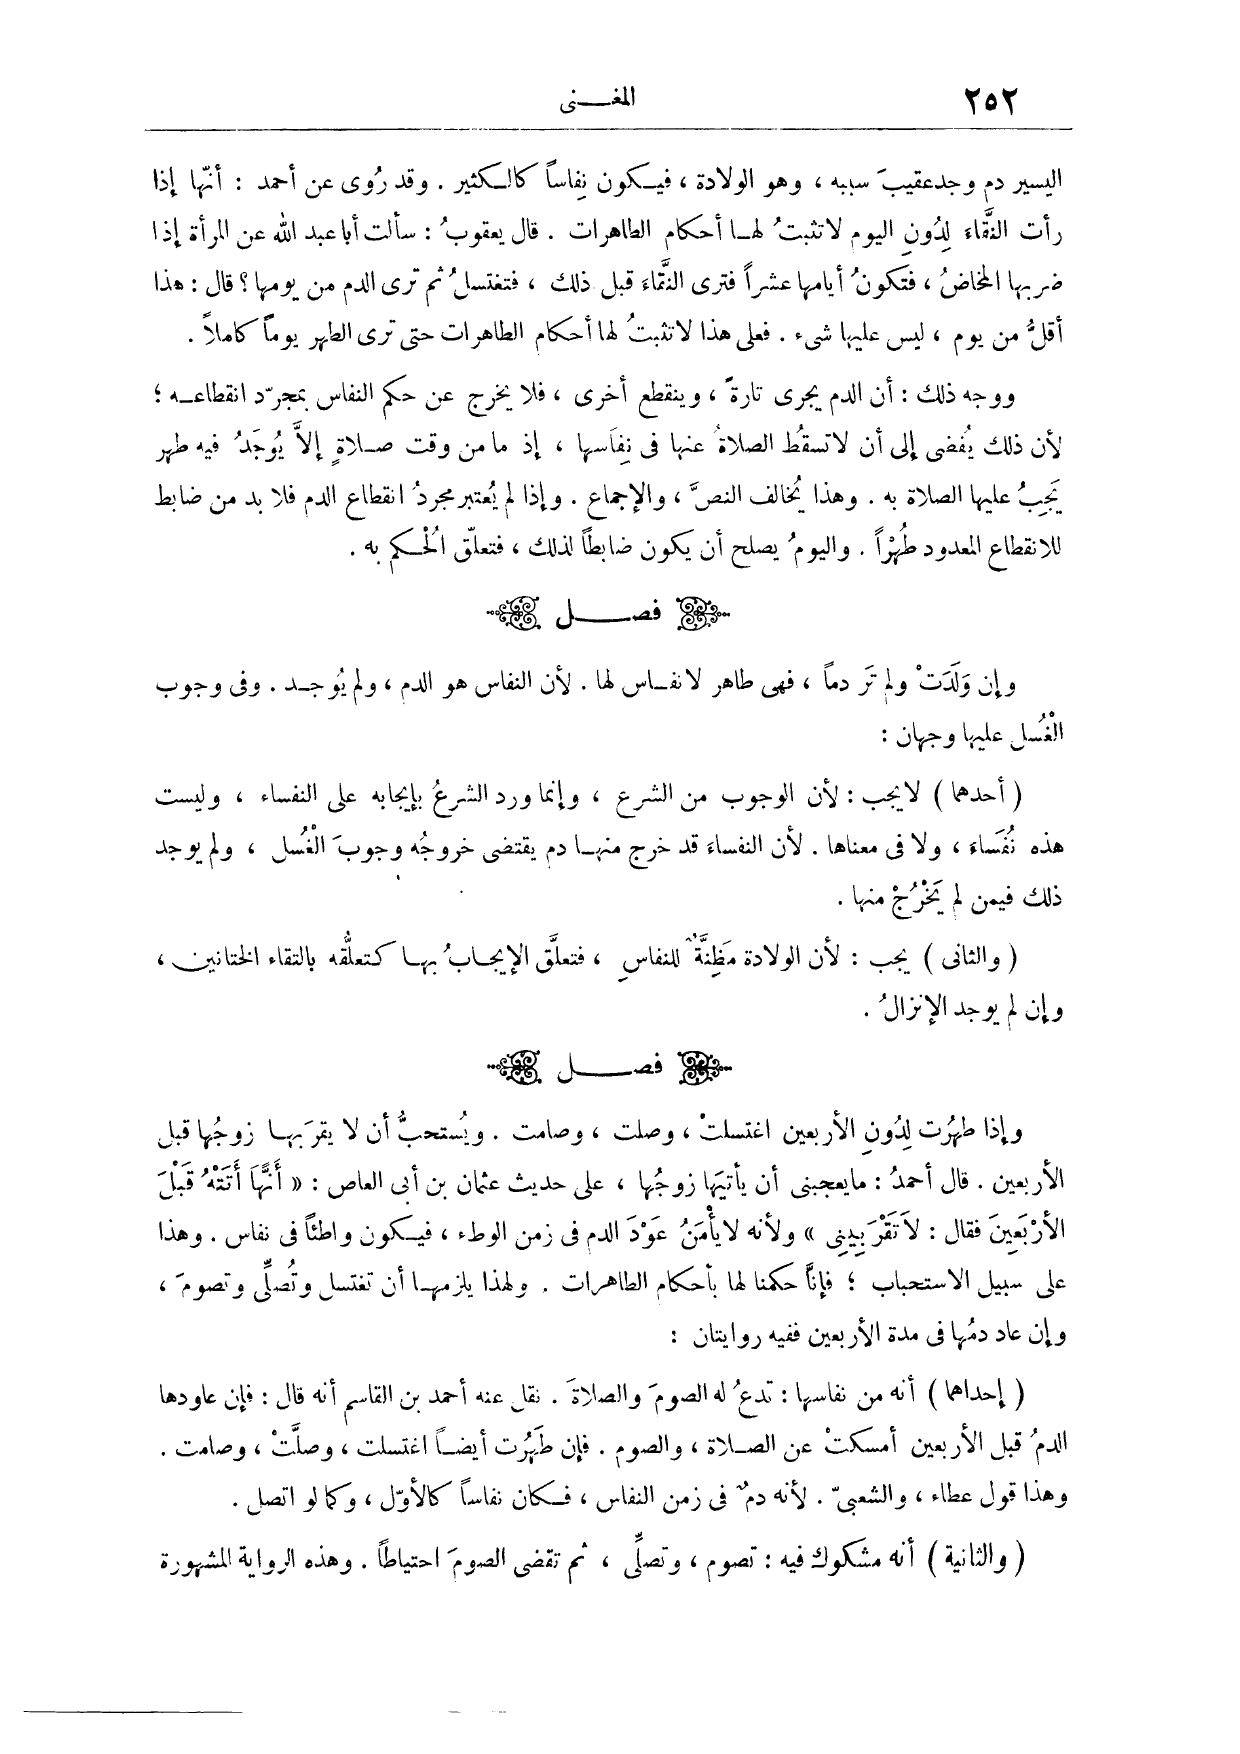 ٢٥٢
المغـــنى
اليسير دم وجد عقيبَ سببه ، وهو الولادة ، فيكون نِفاساً كالكثير . وقد رُوى عن أحمد : أنّها إذا
رأت النَّقاءَ لِدُونِ اليوم لا تثبتُ لها أحكام الطاهرات . قال يعقوبُ : سألت أبا عبد الله عن المرأة إذا
ضربها المخاضُ ، فتكونُ أيامها عشراً فترى النَّقاءَ قبل ذلك ، فتغتسلُ ثم ترى الدم من يومها ؟ قال : هذا
أقلُّ من يوم ، ليس عليها شىء . فعلى هذا لا تثبتُ لها أحكام الطاهرات حتى ترى الطهر يوماً كاملاً .
ووجه ذلك : أن الدم يجرى تارةً ، وينقطع أخرى ، فلا يخرج عن حكم النفاس بمجرّد انقطاعه ؛
لأن ذلك يُفضى إلى أن لا تسقُط الصلاةُ عنها فى نِفَاسها ، إذ ما من وقت صلاةٍ إلاَّ يُوجَدُ فيه طهر
يَجِبُ عليها الصلاة به . وهذا يُخالف النصَّ ، والإجماع . وإذا لم يُعتبر مجردُ انقطاع الدم فلا بد من ضابط
للانقطاع المعدود طُهْراً . واليومُ يصلح أن يكون ضابطاً لذلك ، فتعلّق الْحُكم به .
فصــــل
وإن وَلَدَتْ ولم تَرَ دماً ، فهى طاهر لا نفاس لها . لأن النفاس هو الدم ، ولم يُوجد . وفى وجوب
الْغُسل عليها وجهان :
( أحدهما ) لا يجب : لأن الوجوب من الشرع ، وإنما ورد الشرعُ بإيجابه على النفساء ، وليست
هذه نُفَساءَ ، ولا فى معناها . لأن النفساءَ قد خرج منها دم يقتضى خروجُه وجوبَ الْغُسل ، ولم يوجد
ذلك فيمن لم يَخْرُجْ منها .
( والثانى ) يجب : لأن الولادة مَظِنَّةٌ للنفاسِ ، فتعلَّق الإيجابُ بها كتعلُّقه بالتقاء الختانين ،
وإن لم يوجد الإنزالُ .
فصــــل
وإذا طهُرت لِدُونِ الأربعين اغتسلتْ ، وصلت ، وصامت . ويُستحبُّ أن لا يقرَبها زوجُها قبل
الأربعين . قال أحمدُ : ما يعجبنى أن يأتيَها زوجُها ، على حديث عثمان بن أبى العاص : « أَنَّهَا أَتَتْهُ قَبْلَ
الأرْبَعِينَ فقال : لاَ تَقْرَبِينِى » ولأنه لا يأْمَنُ عَوْدَ الدم فى زمن الوطء ، فيكون واطئاً فى نفاس . وهذا
على سبيل الاستحباب ؛ فإنَّا حكمنا لها بأحكام الطاهرات . ولهذا يلزمها أن تغتسل وتُصلِّى وتصومَ ،
وإن عاد دمُها فى مدة الأربعين ففيه روايتان :
( إحداهما ) أنه من نفاسها : تدعُ له الصومَ والصلاةَ . نقل عنه أحمد بن القاسم أنه قال : فإن عاودها
الدمُ قبل الأربعين أمسكتْ عن الصلاة ، والصوم . فإن طَهُرت أيضاً اغتسلت ، وصلَّتْ ، وصامت .
وهذا قول عطاء ، والشعبىّ . لأنه دمٌ فى زمن النفاس ، فكان نفاساً كالأوّل ، وكما لو اتصل .
( والثانية ) أنه مشكوك فيه : تصوم ، وتصلِّى ، ثم تقضى الصومَ احتياطاً . وهذه الرواية المشهورة